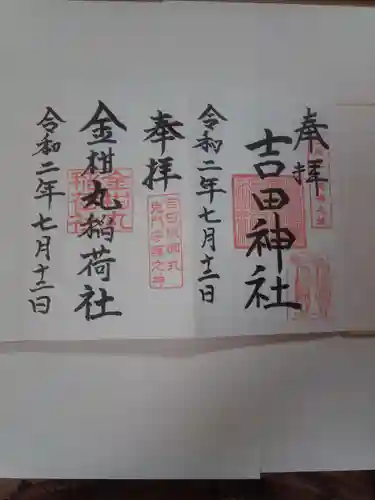 奉拝
吉田神社
令和二年七月十二日
奉拝
金柑丸稲荷社
令和二年七月十二日